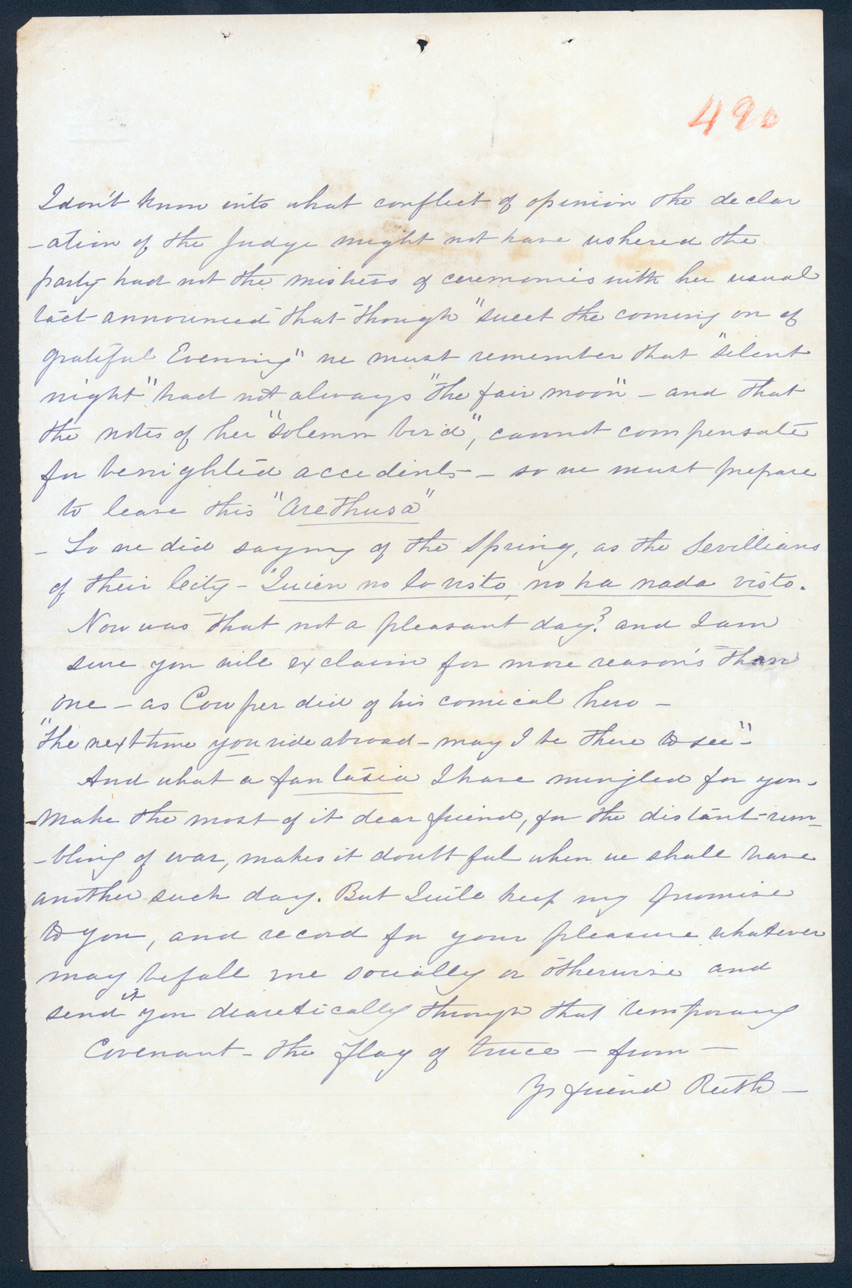 490
I don't know into what conflict of opinion the declar
-ation of the Judge might not have ushered the
party had not the mistress of ceremonies with her usual
tact announced that though "sweet the coming on of
grateful Evening" we must remember that "silent
night" had not always "the fair moon" - and that
the notes of her "solemn bird", cannot compensate
for benighted accidents - so we must prepare
to leave this "Arethusa"
- So we did saying of the Spring, as the Sevillians
of their City - Quien no ha visto, no ha nada visto.
Now was that not a pleasant day? and I am
sure you will exclaim for more reason's than
one - as Cowper did of his comical hero -
"the next time you ride abroad - may I be there to see" -
And what a fantasia I have mingled for you -
make the most of it dear friend, for the distant rum-
-bling of war, makes it doubtful when we shall have
another such day. But I will keep my promise
to you, and record for your pleasure whatever
may befall me socially or otherwise and
send it you through that temporary
Covenant - the flag of truce - from -
Yr friend Ruth -